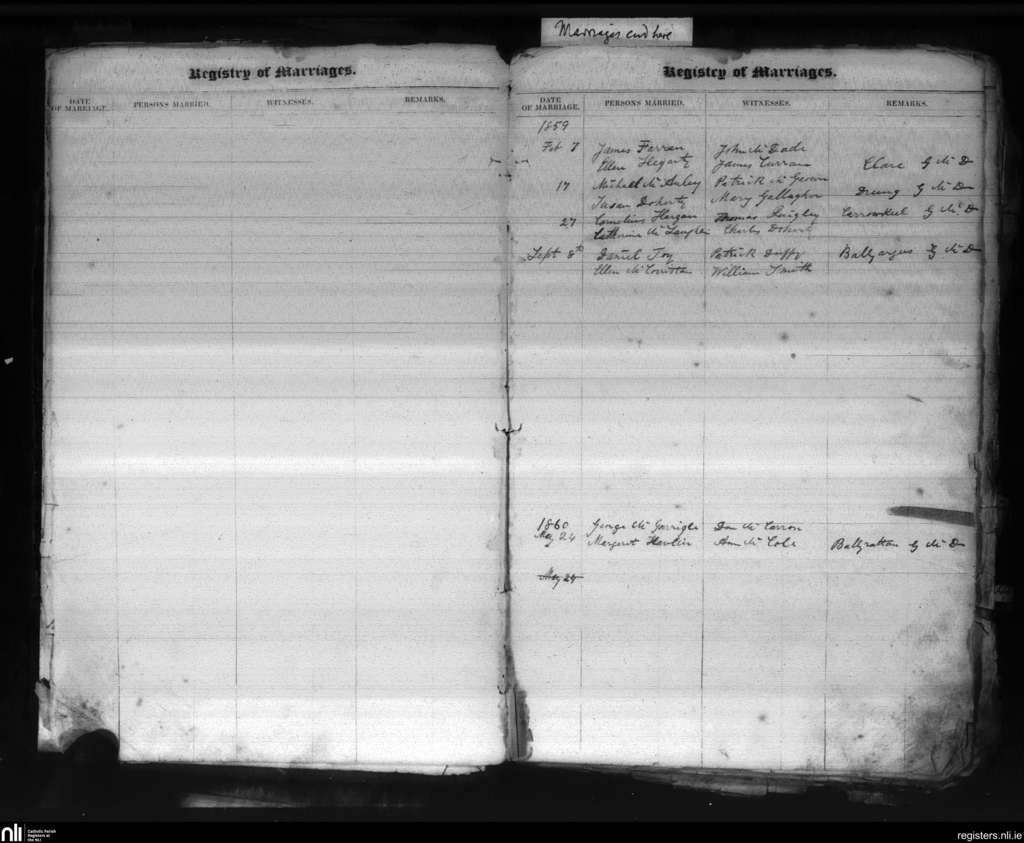 Marriages end here
Registry of Marriages.
DATE OF MARRIAGE. PERSONS MARRIED. WITNESSES. REMARKS.
Registry of Marriages.
DATE OF MARRIAGE. PERSONS MARRIED. WITNESSES. REMARKS.
1859
Feb 7 James Farren John McDade
Ellen Hegarty James Curran Clare G McD
17 Michael McAuley Patrick McGeown
Susan Doherty Mary Gallagher Drung G McD
27 Cornelius Thomas Quigley Carrowkeel G McD
Catherine McLaughlin Charles Dohert
Sept 8th Daniel Foy Patrick Duffy Ballyargus G McD
Ellen William Smith
1860 George McGonigle Dan McCarron
May 24 Margaret Ann McCole Ballyrattan G McD
May 24
nli
Catholic Parish
Registers at
the NLI
registers.nli.ie